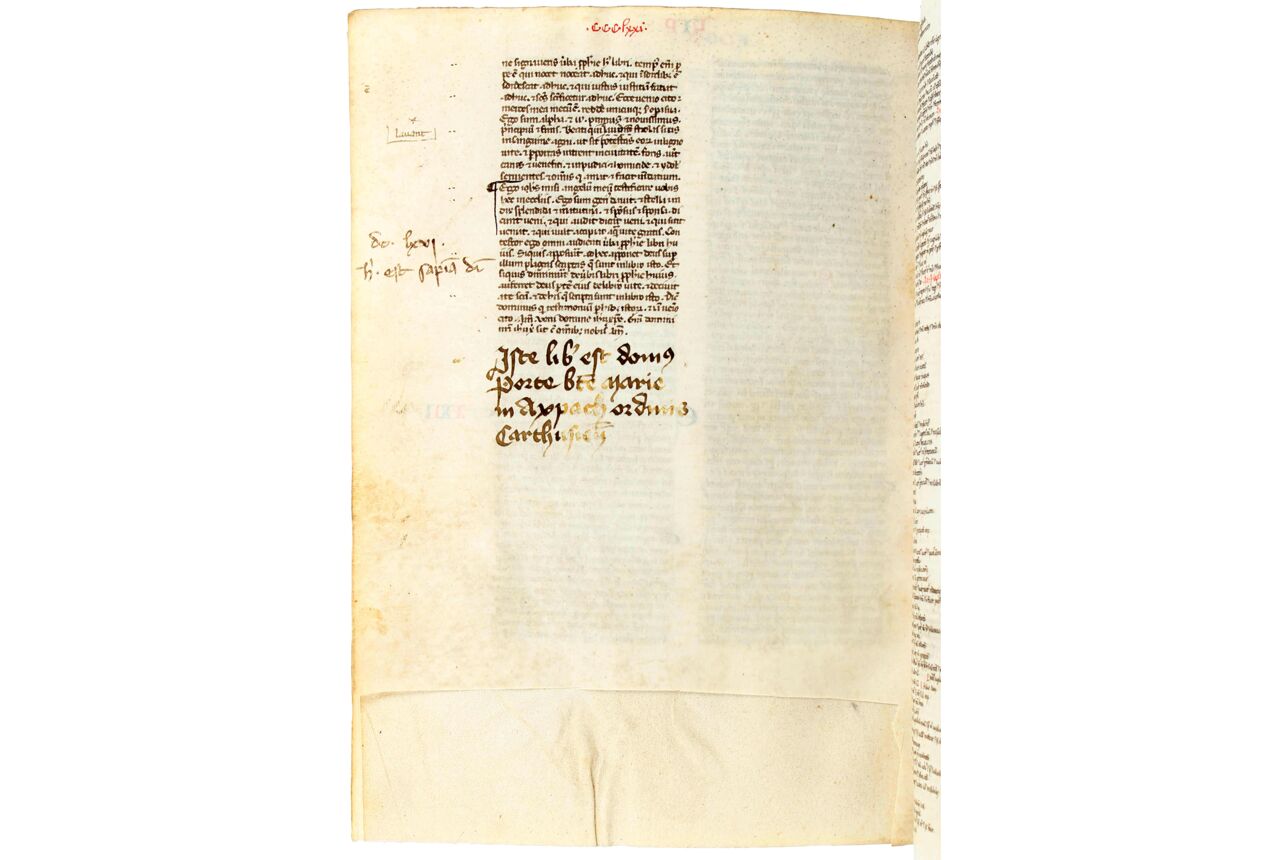 .ccclxxi.
ne signaveris v̄ba ꝓphīe hꝰ libri. tempꝰ eī ꝓ
pe ē qui nocet noceat adhuc. ⁊ qui ī sordibꝫ ē
sordescat adhuc. ⁊ qui iustus iustitiā faciat
adhuc. ⁊ sc̄s sc̄ificetur adhuc. Ecce venio cito
merces mea mecū ē. reddē unicuiqꝫ s̄ opa sua.
Ego sum alpha. ⁊ ω. primus ⁊ novissimus.
pncipiū ⁊ finis. Beati qui lavāt stolas suas
in sanguine agni. ut sit potestas eoꝝ in ligno
vite. ⁊ ꝑ portas intrent in civitatē. foris aūt
canes ⁊ venefici. ⁊ impudici ⁊ homicide. ⁊ ydol
servientes ⁊ omīs q̄ amat ⁊ facit mēdatium.
Ego ih̄s misi angelū meū testificare vobis
hec in ecc̄liis. Ego sum genꝰ davit. ⁊ stella
splendida ⁊ matutina. ⁊ spōsus ⁊ sponsa. di
cunt veni. ⁊ qui audit dicat veni. ⁊ qui sitit
veniat. ⁊ qui vult accipiat aquā vite gratis. Con
testor ego omni audienti v̄ba ꝓphīe libri hu
iꝰ. Siquis apposuit̄ ad hec apponet deus suꝑ
illum plagas scriptas q̄ sunt in libro isto. Et
siquis diminuit̄ de v̄bis libri ꝓphīe huius.
auferet deus ꝑtē eiꝰ de libro vite. ⁊ de civit
ate sc̄a. ⁊ de hiis q̄ scripta sunt in libro isto. Dic̄
dominus q̄ testimoniū ꝑhibꝫ istoꝝ. ⁊ iā venio
cito. Am̄. Veni domine ih̄u xp̄e. Grā domini
nr̄i ih̄u xp̄i sit cū omibꝫ nobis am̄.
Lavant
dc. lxvi.
h̄. est sapīa dī
Iste lib̾ est domꝰ
Porte bt̄e Marie
in Axpach ordinis
Carthusieñ